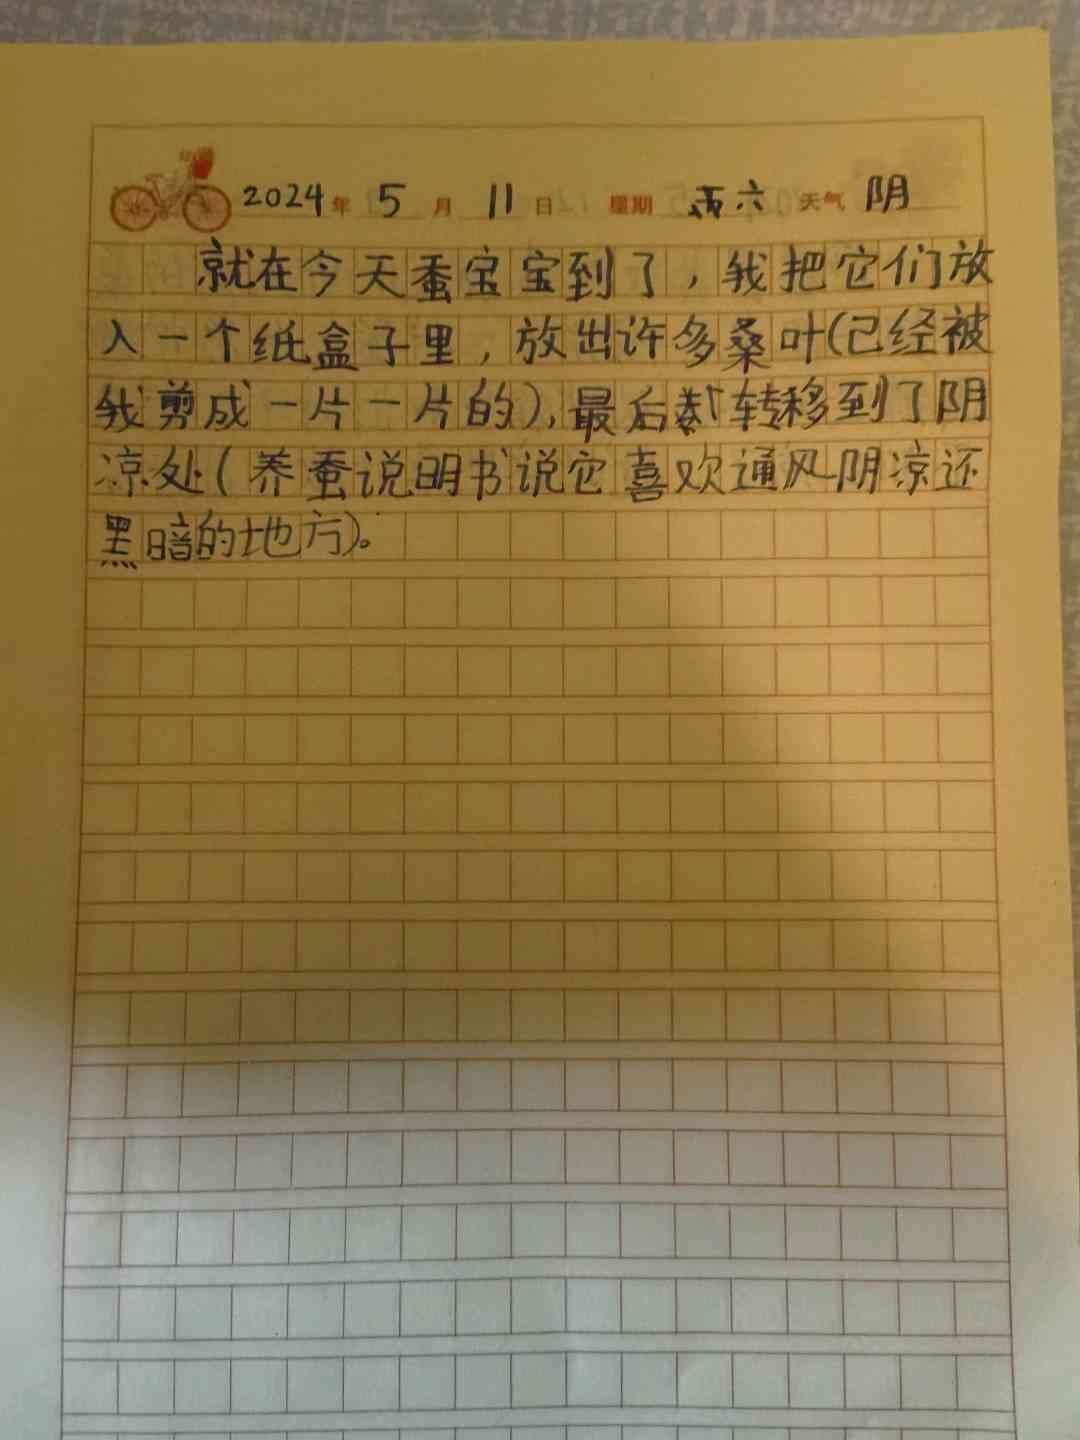 2024年5月11日 星期六 天气阴
就在今天蚕宝宝到了，我把它们放
入一个纸盒子里，放出许多桑叶(已经被
我剪成一片一片的)，最后转移到了阴
凉处(养蚕说明书说它喜欢通风阴凉还
黑暗的地方)。